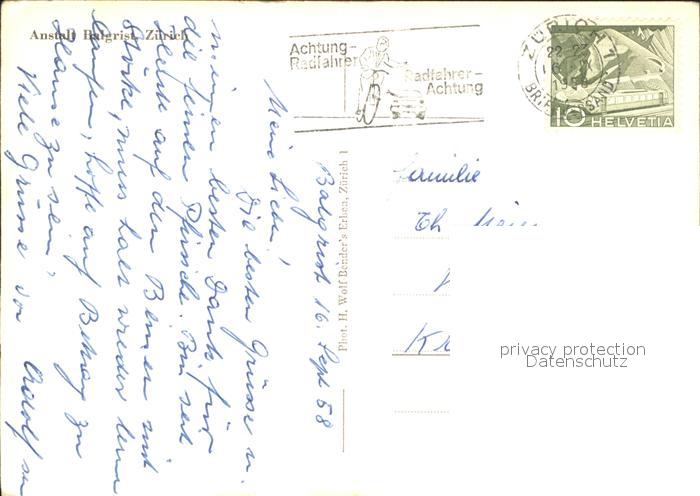 Anstalt Balgrist, Zürich
Achtung-
Radfahrer
Radfahrer-
Achtung
ZÜRICH
22-23
BRIEFVERSAND
10 HELVETIA
Phot. H. Wolf Bender's Erben, Zürich 1
Balgrist 16. Sept 58
Meine Lieben!
Die besten Grüsse u.
meinen besten Dank für
die feinen Pfirsiche. Bin seit
auf den Beinen mit
Stöcke, muss halt wieder lern
laufen, hoffe auf Bettag zu
Hause zu sein.
Viele Grüsse von Adolf
Familie
Th
K
privacy protection
Datenschutz